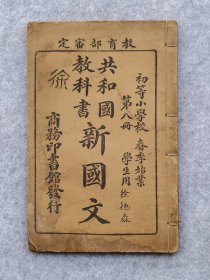 教育部審定
初等小學校 春季始業
第八冊 學生用
共和國
教科書
新國文
徐
商務印書館發行